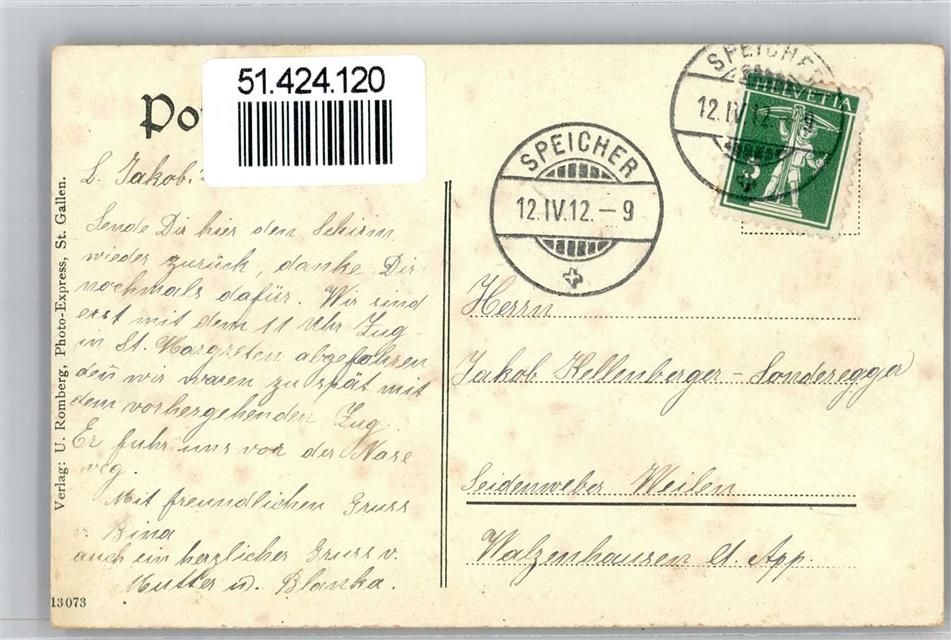 51.424.120
Po
SPEICHER
12.IV.12.-9
HELVETIA
5
SPEICHER
12.IV.12.-9
L. Jakob!
Sende Dir hier den Schirm
wieder zurück, danke Dir
nochmals dafür. Wir sind
erst mit dem 11 Uhr Zug
in St. Margreten abgefahren
den̄ wir waren zu spät mit
dem vorhergehenden Zug.
Er fuhr uns vor der Nase
weg.
Mit freundlichen Gruss
v. Bina
auch ein herzlicher Gruss v.
Mutter u. Blanka.
Herrn
Jakob Kellenberger-Sonderegger
Seidenweber Weilen
Walzenhausen Ct. App.
Verlag: U. Romberg, Photo-Express, St. Gallen.
13073